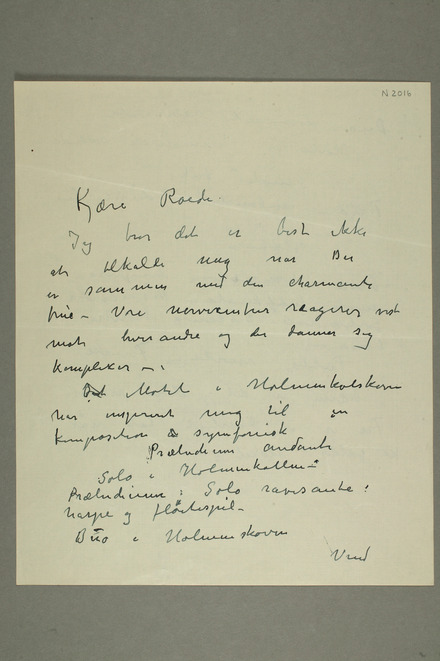 N 2016
Kjære Roede.
Jeg tror det er bedst ikke
at tilkalle meg når De
er sammen med den charmante
frue – Vore nervecentrer reagerer vist
mot hverandre og der danner sig
komplekser –
Motet i Holmenkolskoven
har inspireret meg til en
komposition symfonisk
Præludium andante
Solo i Holmenkollen –
Præludium: Solo ravisante:
harpe og fløitespil –
Duo i Holmenskoven
Vred